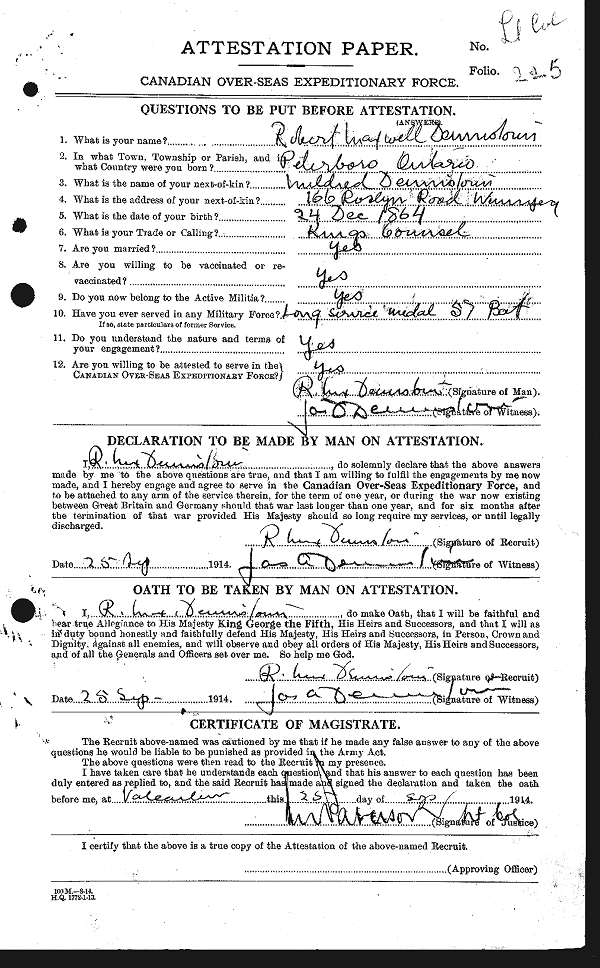 Lt Col
ATTESTATION PAPER.
No.
Folio. 225
CANADIAN OVER-SEAS EXPEDITIONARY FORCE.
QUESTIONS TO BE PUT BEFORE ATTESTATION.
(ANSWERS).
1. What is your name? Robert Maxwell Dennistoun
2. In what Town, Township or Parish, and in
what Country were you born? Peterboro Ontario
3. What is the name of your next-of-kin? Mildred Dennistoun
4. What is the address of your next-of-kin? 166 Roslyn Road Winnipeg
5. What is the date of your birth? 24 Dec 1864
6. What is your Trade or Calling? Kings Counsel
7. Are you married? Yes
8. Are you willing to be vaccinated or re-
vaccinated? Yes
9. Do you now belong to the Active Militia? Yes
10. Have you ever served in any Military Force? Long service medal 57 Bat
If so, state particulars of former Service.
11. Do you understand the nature and terms of
your engagement? Yes
12. Are you willing to be attested to serve in the
CANADIAN OVER-SEAS EXPEDITIONARY FORCE? Yes
R. Max Dennistoun (Signature of Man).
Jas A Dennistoun (Signature of Witness).
DECLARATION TO BE MADE BY MAN ON ATTESTATION.
I, R. Max Dennistoun, do solemnly declare that the above answers
made by me to the above questions are true, and that I am willing to fulfil the engagements by me now
made, and I hereby engage and agree to serve in the Canadian Over-Seas Expeditionary Force, and
to be attached to any arm of the service therein, for the term of one year, or during the war now existing
between Great Britain and Germany should that war last longer than one year, and for six months after
the termination of that war provided His Majesty should so long require my services, or until legally
discharged.
R Max Dennistoun (Signature of Recruit)
Date 25 Sep 1914. Jas A Dennistoun (Signature of Witness)
OATH TO BE TAKEN BY MAN ON ATTESTATION.
I, R. Max Dennistoun, do make Oath, that I will be faithful and
bear true Allegiance to His Majesty King George the Fifth, His Heirs and Successors, and that I will as
in duty bound honestly and faithfully defend His Majesty, His Heirs and Successors, in Person, Crown and
Dignity, against all enemies, and will observe and obey all orders of His Majesty, His Heirs and Successors,
and of all the Generals and Officers set over me. So help me God.
R. Max Dennistoun (Signature of Recruit)
Date 25 Sep 1914. Jas A Dennistoun (Signature of Witness)
CERTIFICATE OF MAGISTRATE.
The Recruit above-named was cautioned by me that if he made any false answer to any of the above
questions he would be liable to be punished as provided in the Army Act.
The above questions were then read to the Recruit in my presence.
I have taken care that he understands each question, and that his answer to each question has been
duly entered as replied to, and the said Recruit has made and signed the declaration and taken the oath
before me, at Valcartier this 25 day of Sep 1914.
Lt Col (Signature of Justice)
I certify that the above is a true copy of the Attestation of the above-named Recruit.
(Approving Officer)
100 M.—8-14.
H.Q. 1772-1-13.